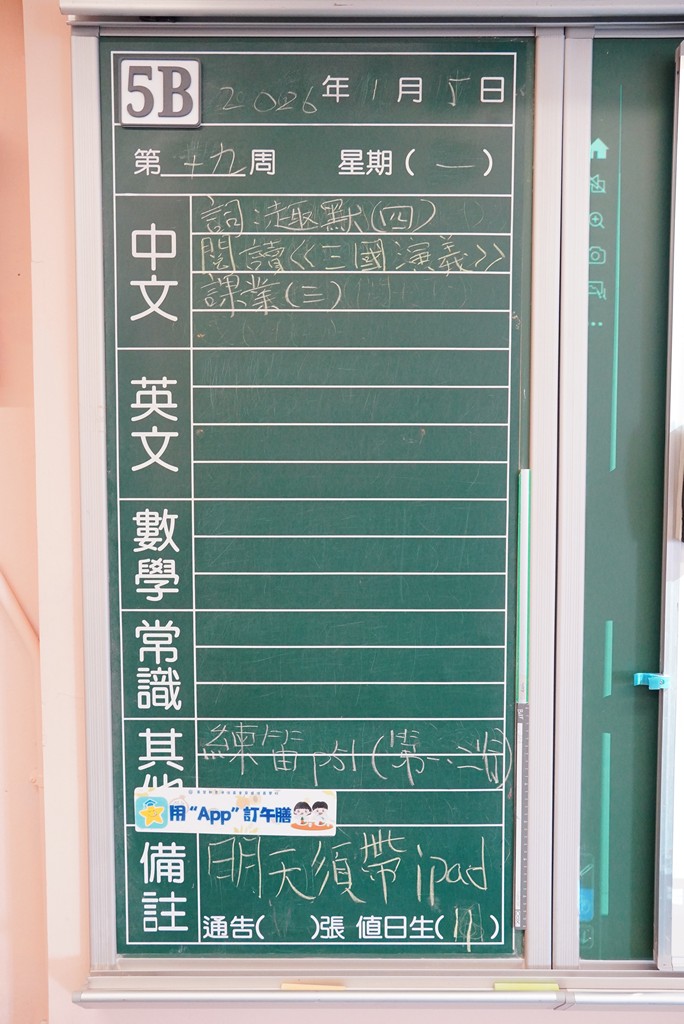 5B 2026年1月5日
第十九周 星期(一)
中文
詞:趣默(四)
閱讀《三國演義》
課業(三)
英文
數學
常識
其他
練 p51(第一、二題)
用“App”訂午膳
備註
明天須帶ipad
通告( )張 值日生( )